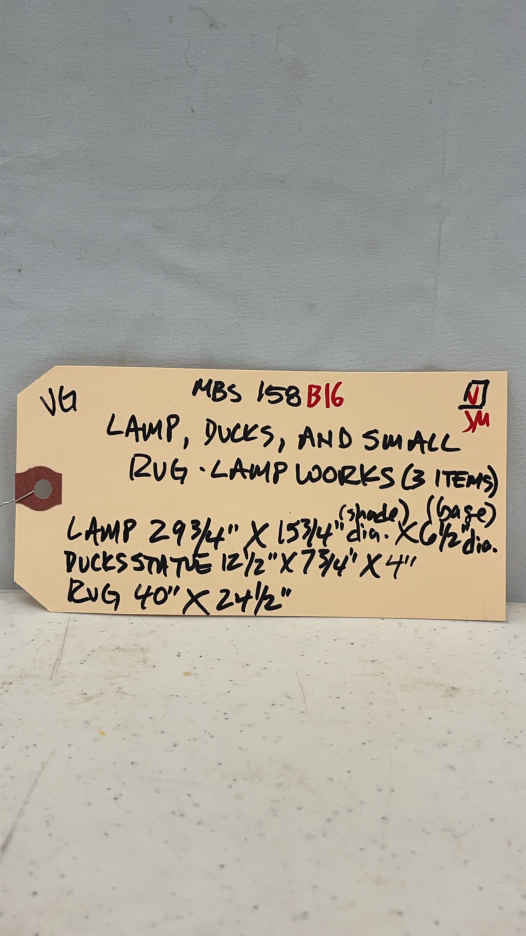 VG
MBS 158 B16
N
JM
LAMP, DUCKS, AND SMALL
RUG · LAMP WORKS (3 ITEMS)
LAMP 29 3/4" X 15 3/4" (shade) dia. X 6 1/2" (base) dia.
DUCKS STATUE 12 1/2" X 7 3/4" X 4"
RUG 40" X 24 1/2"